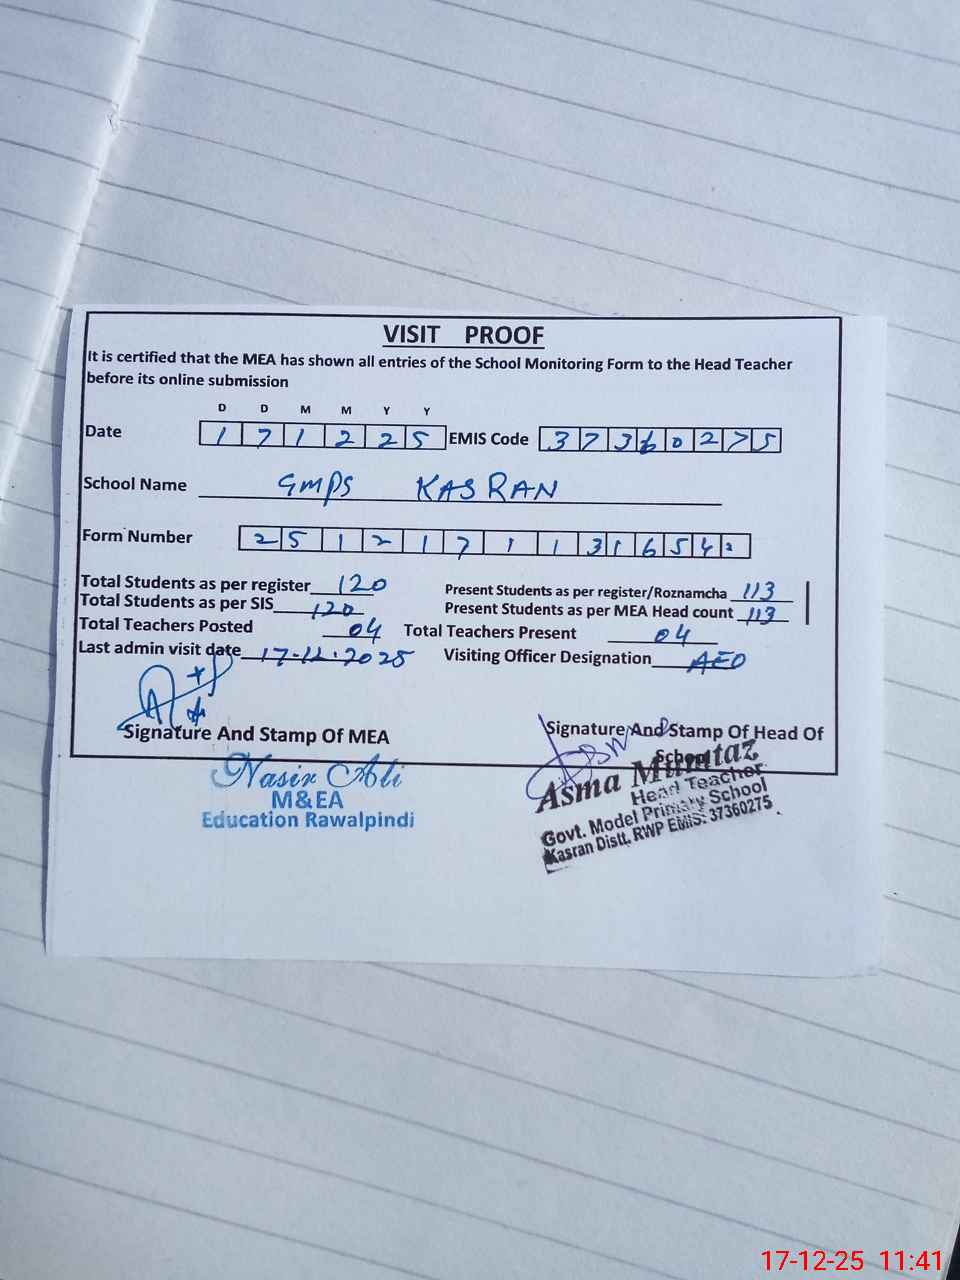 VISIT PROOF
It is certified that the MEA has shown all entries of the School Monitoring Form to the Head Teacher
before its online submission
D D M M Y Y
Date 1 7 1 2 2 5 EMIS Code 3 7 3 6 0 2 7 5
School Name GMPS KASRAN
Form Number 2 5 1 2 1 7 1 1 3 1 6 5 4
Total Students as per register 120 Present Students as per register/Roznamcha 113
Total Students as per SIS 120 Present Students as per MEA Head count 113
Total Teachers Posted 04 Total Teachers Present 04
Last admin visit date 17-12-2025 Visiting Officer Designation AEO
Signature And Stamp Of MEA Signature And Stamp Of Head Of
School
Nasir Ali
M&EA
Education Rawalpindi
Asma Mumtaz
Head Teacher
Govt. Model Primary School
Kasran Distt. RWP EMIS: 37360275
17-12-25 11:41